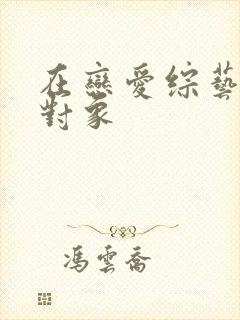 在戀愛綜藝
對象
馮雲喬